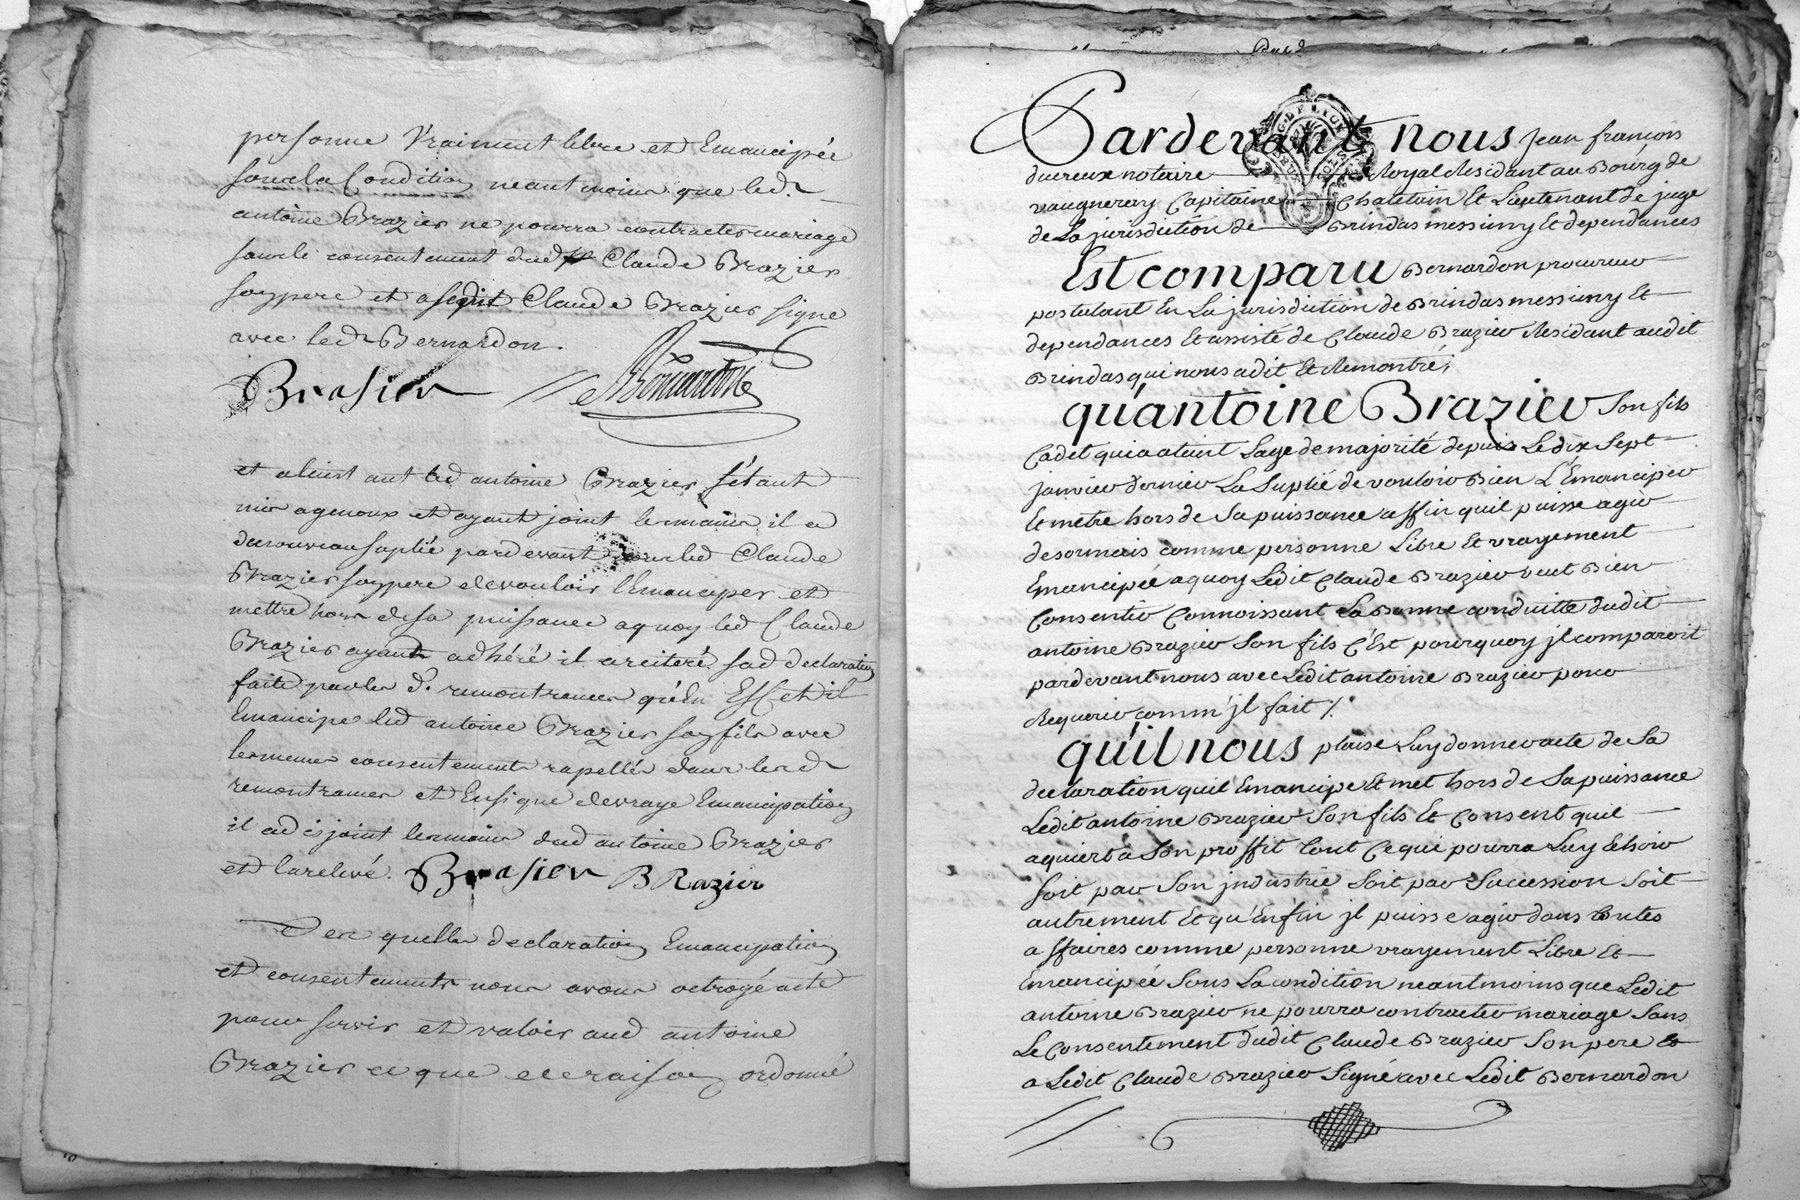 personne Vraiment libre et Emancipée
soubs la Condition neantmoins que led
antoine Brazier ne pourra contracter mariage
sans le consentement dud Claude Brazier
son pere et a ledit Claude Brazier signe
avec led Bernardon.
Brasier Bernardon
et alinst ant led antoine Brazier s'étant
mis agenoux et ayant joint les mains il a
de nouveau suplié pardevant nous led Claude
Brazier son pere de vouloir l'Emanciper et
mettre hors de sa puissance a quoy led Claude
Brazier ayant adhéré il a reiteré sad declaration
faite par les d. remontrances qu'En Effet il
Emancipe led antoine Brazier son fils avec
les memes consentements rapellés dans lesd
remontrances et En signe de vraye Emancipation
il a disjoint les mains dud antoine Brazier
et l'a relevé. Brasier BRazier
Des quelles declaration Emancipation
et consentements nous avons octroyé acte
pour servir et valoir aud antoine
Brazier ce que de raison ordonné
Pardevant nous Jean francois
ducreux notaire Royal Residant au Bourg de
vaugneray Capitaine Chatelain Et Lieutenant de juge
de La jurisdiction de Brindas messimy Et dependances
Est comparu Bernardon procureur
postulant En La jurisdiction de Brindas messimy Et
dependances Et assisté de Claude Brazier Residant audit
Brindas qui nous a dit Et Remontré;
qu'antoine Brazier Son fils
Cadet qui a ataint Lage de majorité depuis Le dix Sept
janvier dernier La Suplié de vouloir Bien L'Emanciper
Et metre hors de Sa puissance affin quil puisse agir
desormais comme personne Libre Et vrayement
Emancipée a quoy Ledit Claude Brazier veut Bien
Consentir Connoissant La Bonne conduitte dudit
antoine Brazier Son fils C'Est pourquoy jl comparoit
pardevant nous avec Ledit antoine Brazier pour
Requerir comm'jl fait /.
qu'il nous plaise Luy donner acte de Sa
declaration quil Emancipe Et met hors de Sa puissance
Ledit antoine Brazier Son fils Et Consent quil
aquiert a Son proffit tout Ce qui pourra Luy Echoir
Soit par Son jndustrie Soit par Succession Soit
autrement Et qu'Enfin jl puisse agir dans toutes
affaires comme personne vrayement Libre Et
Emancipée Sous La condition neantmoins que Ledit
antoine Brazier ne pourra contracter mariage Sans
Le Consentement dudit Claude Brazier Son pere Et
a Ledit Claude Brazier Signé avec Ledit Bernardon